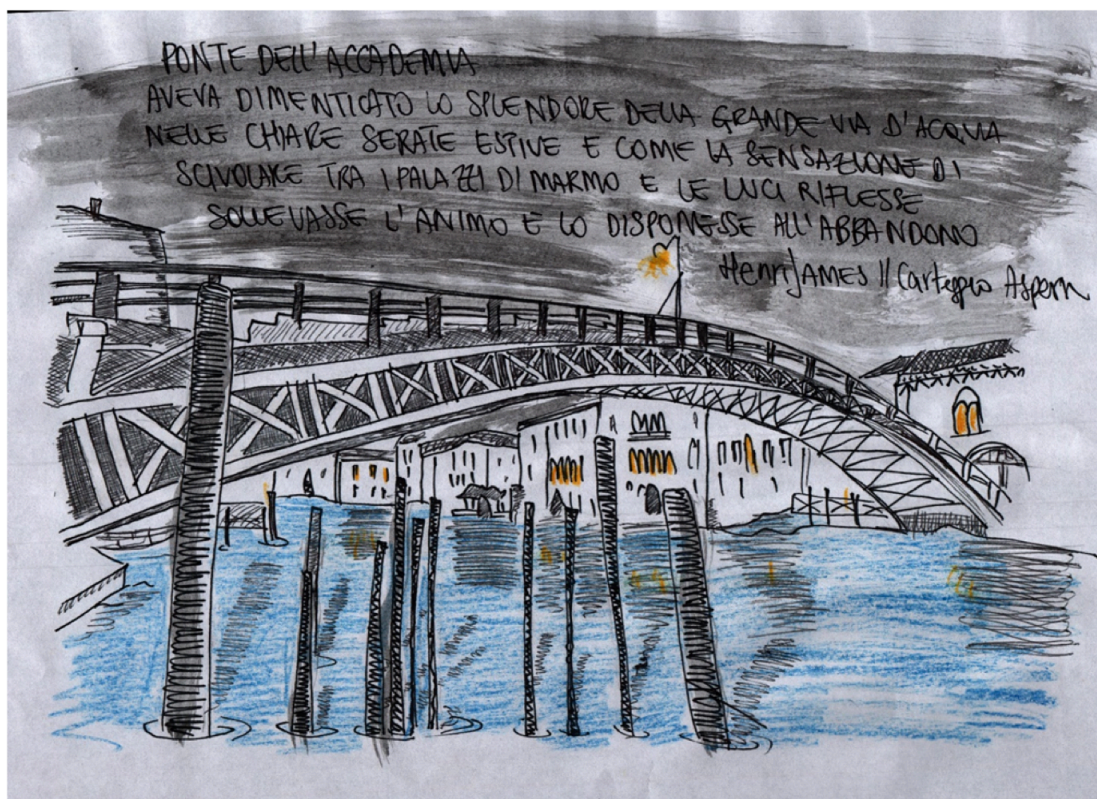 PONTE DELL'ACCADEMIA
AVEVA DIMENTICATO LO SPLENDORE DELLA GRANDE VIA D'ACQUA
NELLE CHIARE SERATE ESTIVE E COME LA SENSAZIONE DI
SCIVOLARE TRA I PALAZZI DI MARMO E LE LUCI RIFLESSE
SOLLEVASSE L'ANIMO E LO DISPONESSE ALL'ABBANDONO
Henri JAMES Il Carteggio Aspern